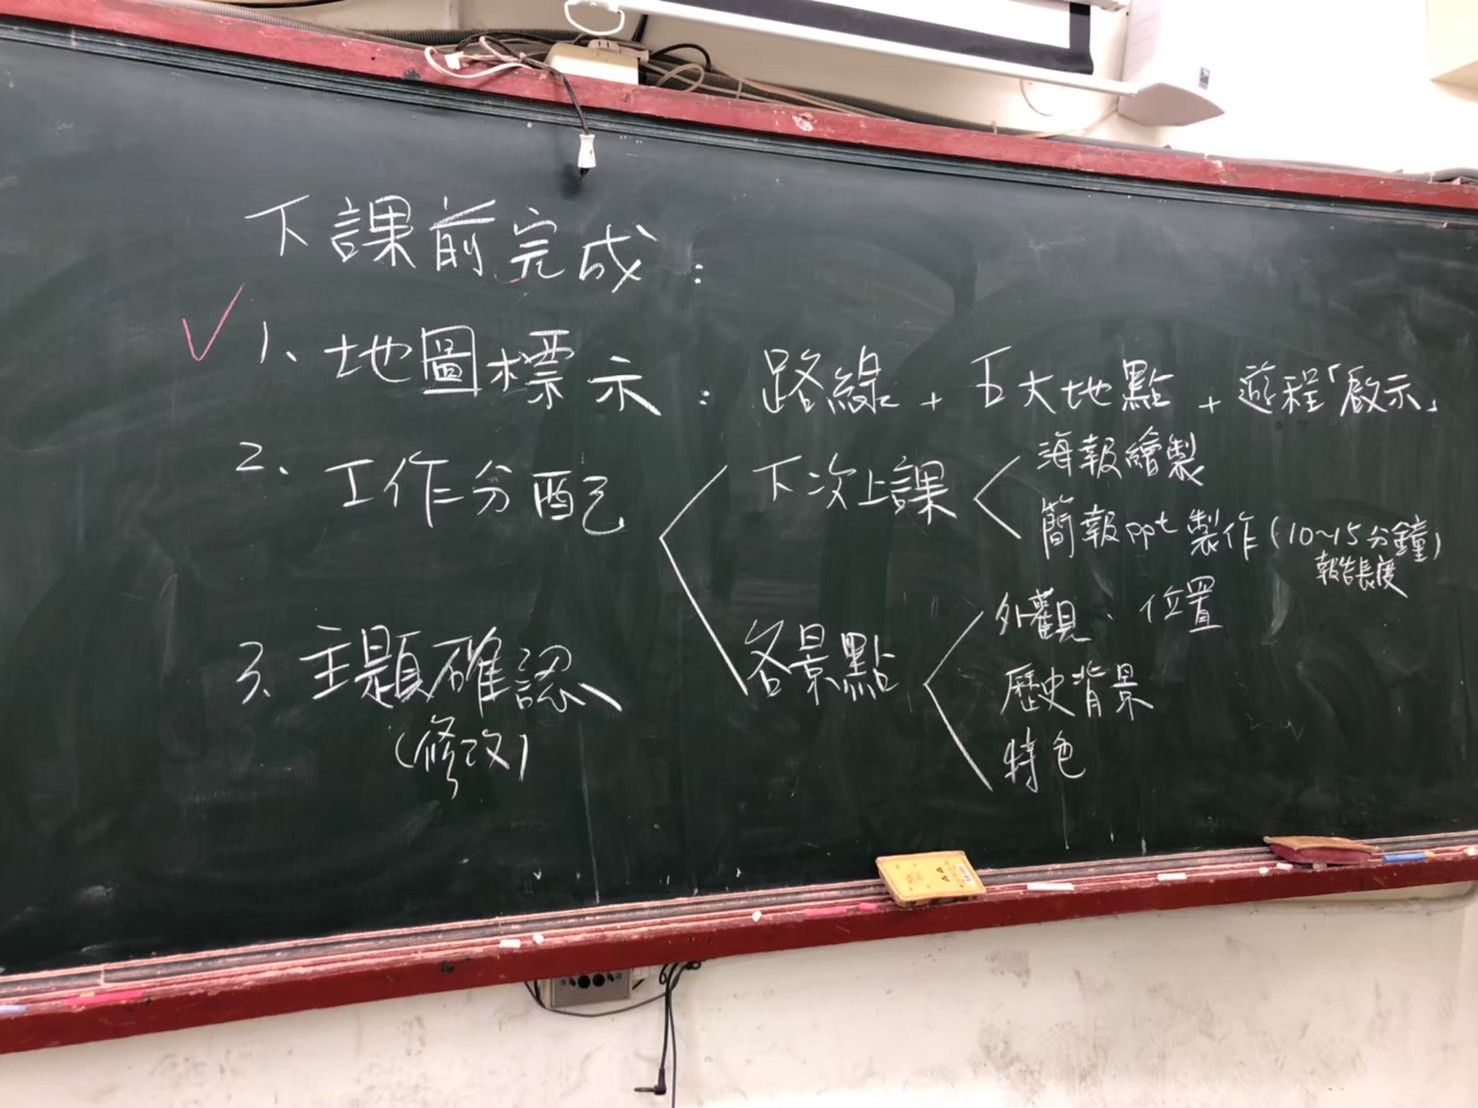 下課前完成：
✓ 1、地圖標示：路線 + 五大地點 + 遊程「啟示」
2、工作分配
下次上課
海報繪製
簡報ppt製作(10~15分鐘)
報告長度
各景點
外觀、位置
歷史背景
特色
3、主題確認
(修改)